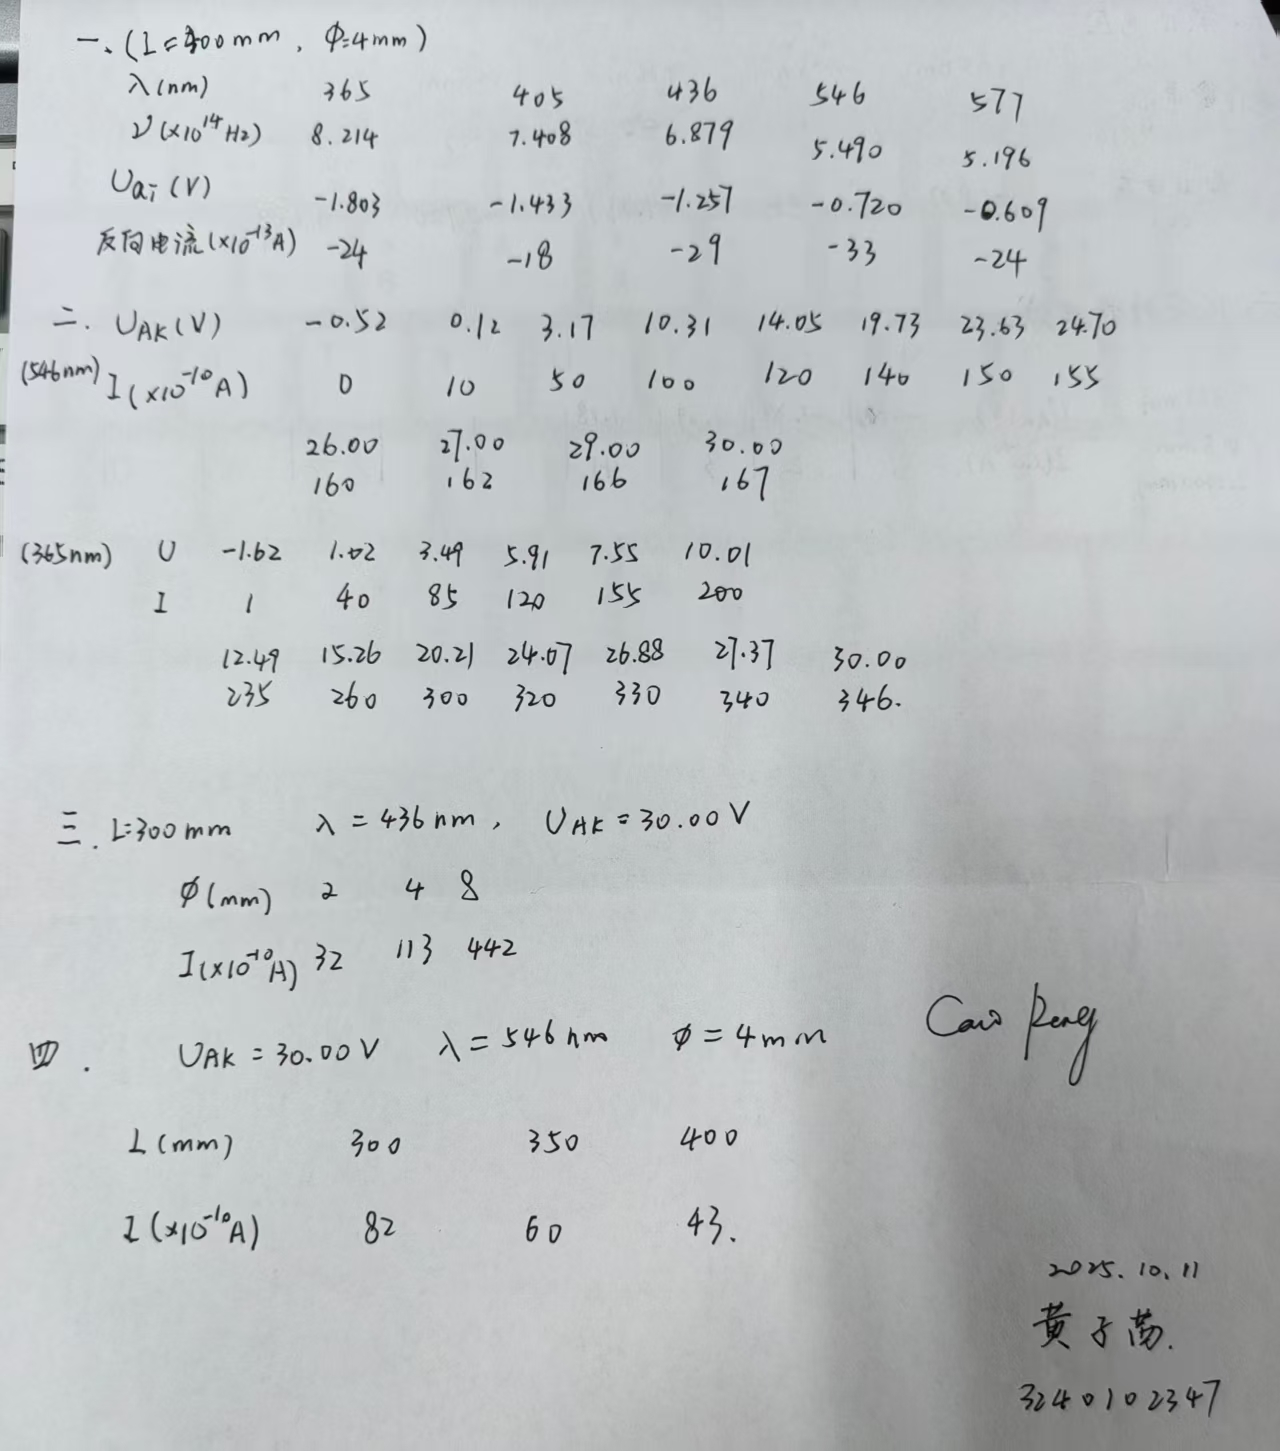 一、(L=300mm, Φ=4mm)
λ(nm) 365 405 436 546 577
ν(×10¹⁴Hz) 8.214 7.408 6.879 5.490 5.196
Uai(V) -1.803 -1.433 -1.257 -0.720 -0.609
反向电流(×10⁻¹³A) -24 -18 -29 -33 -24
二. UAK(V) -0.52 0.12 3.17 10.31 14.05 19.73 23.63 24.70
(546nm) I(×10⁻¹⁰A) 0 10 50 100 120 140 150 155
26.00 27.00 29.00 30.00
160 162 166 167
(365nm) U -1.62 1.02 3.49 5.91 7.55 10.01
I 1 40 85 120 155 200
12.49 15.26 20.21 24.07 26.88 27.37 30.00
235 260 300 320 330 340 346.
三. L=300mm λ=436nm, UAK=30.00V
Φ(mm) 2 4 8
I(×10⁻¹⁰A) 32 113 442
四. UAK=30.00V λ=546nm Φ=4mm
L(mm) 300 350 400
I(×10⁻¹⁰A) 82 60 43.
2025.10.11
黄子
3240102347